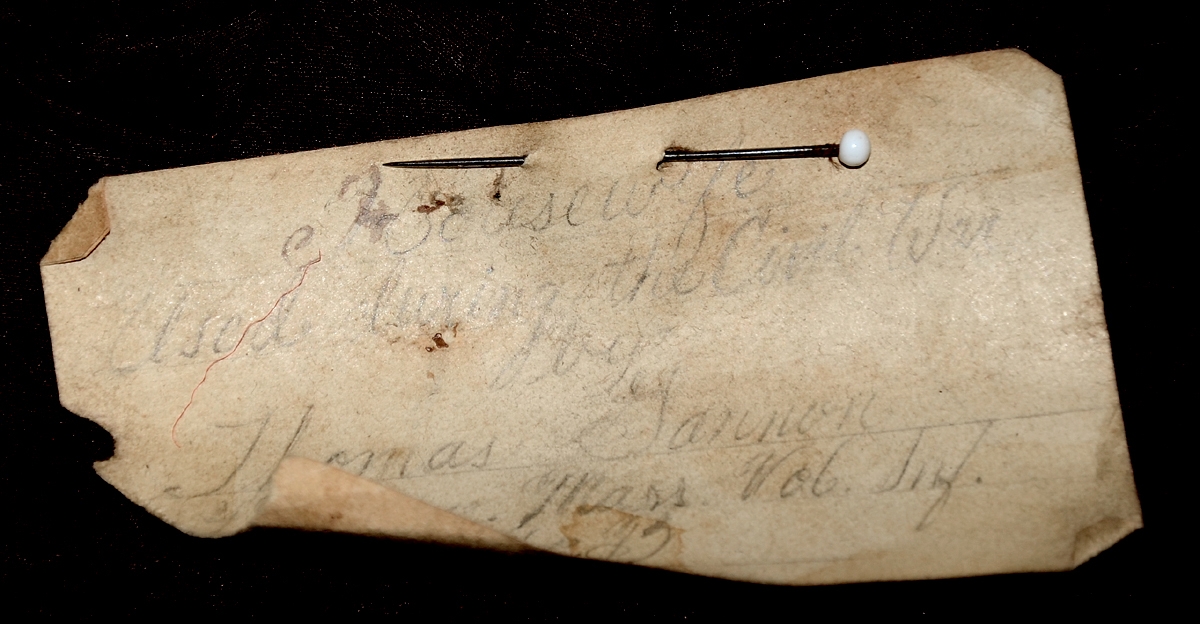 Housewife
Used during the Civil War
by
Thomas Cannon
Mass Vol. Inf.